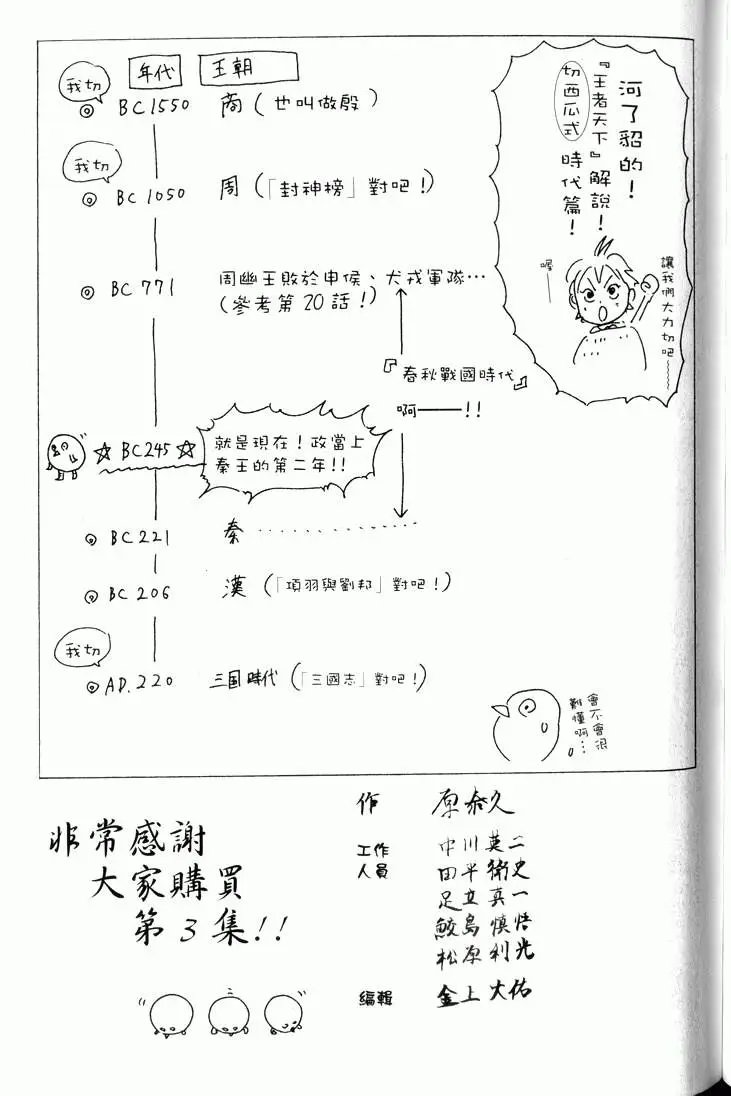 河了貂的！
『王者天下』解說！
切西瓜式 時代篇！
喔——
讓我們大力切吧～～～
年代 王朝
我切
BC1550 商（也叫做殷）
我切
BC1050 周（「封神榜」對吧！）
BC771 周幽王敗於申侯、犬戎軍隊…
（參考第20話！）
『春秋戰國時代』
啊——！！
☆BC245☆ 就是現在！政當上
秦王的第二年！！
BC221 秦……………
BC206 漢（「項羽與劉邦」對吧！）
我切
AD.220 三国時代（「三國志」對吧！）
會不會很
難懂啊…
非常感謝
大家購買
第3集！！
作 原泰久
工作人員
中川英二
田平衛史
足立真一
鮫島慎悟
松原利光
編輯 金上大佑